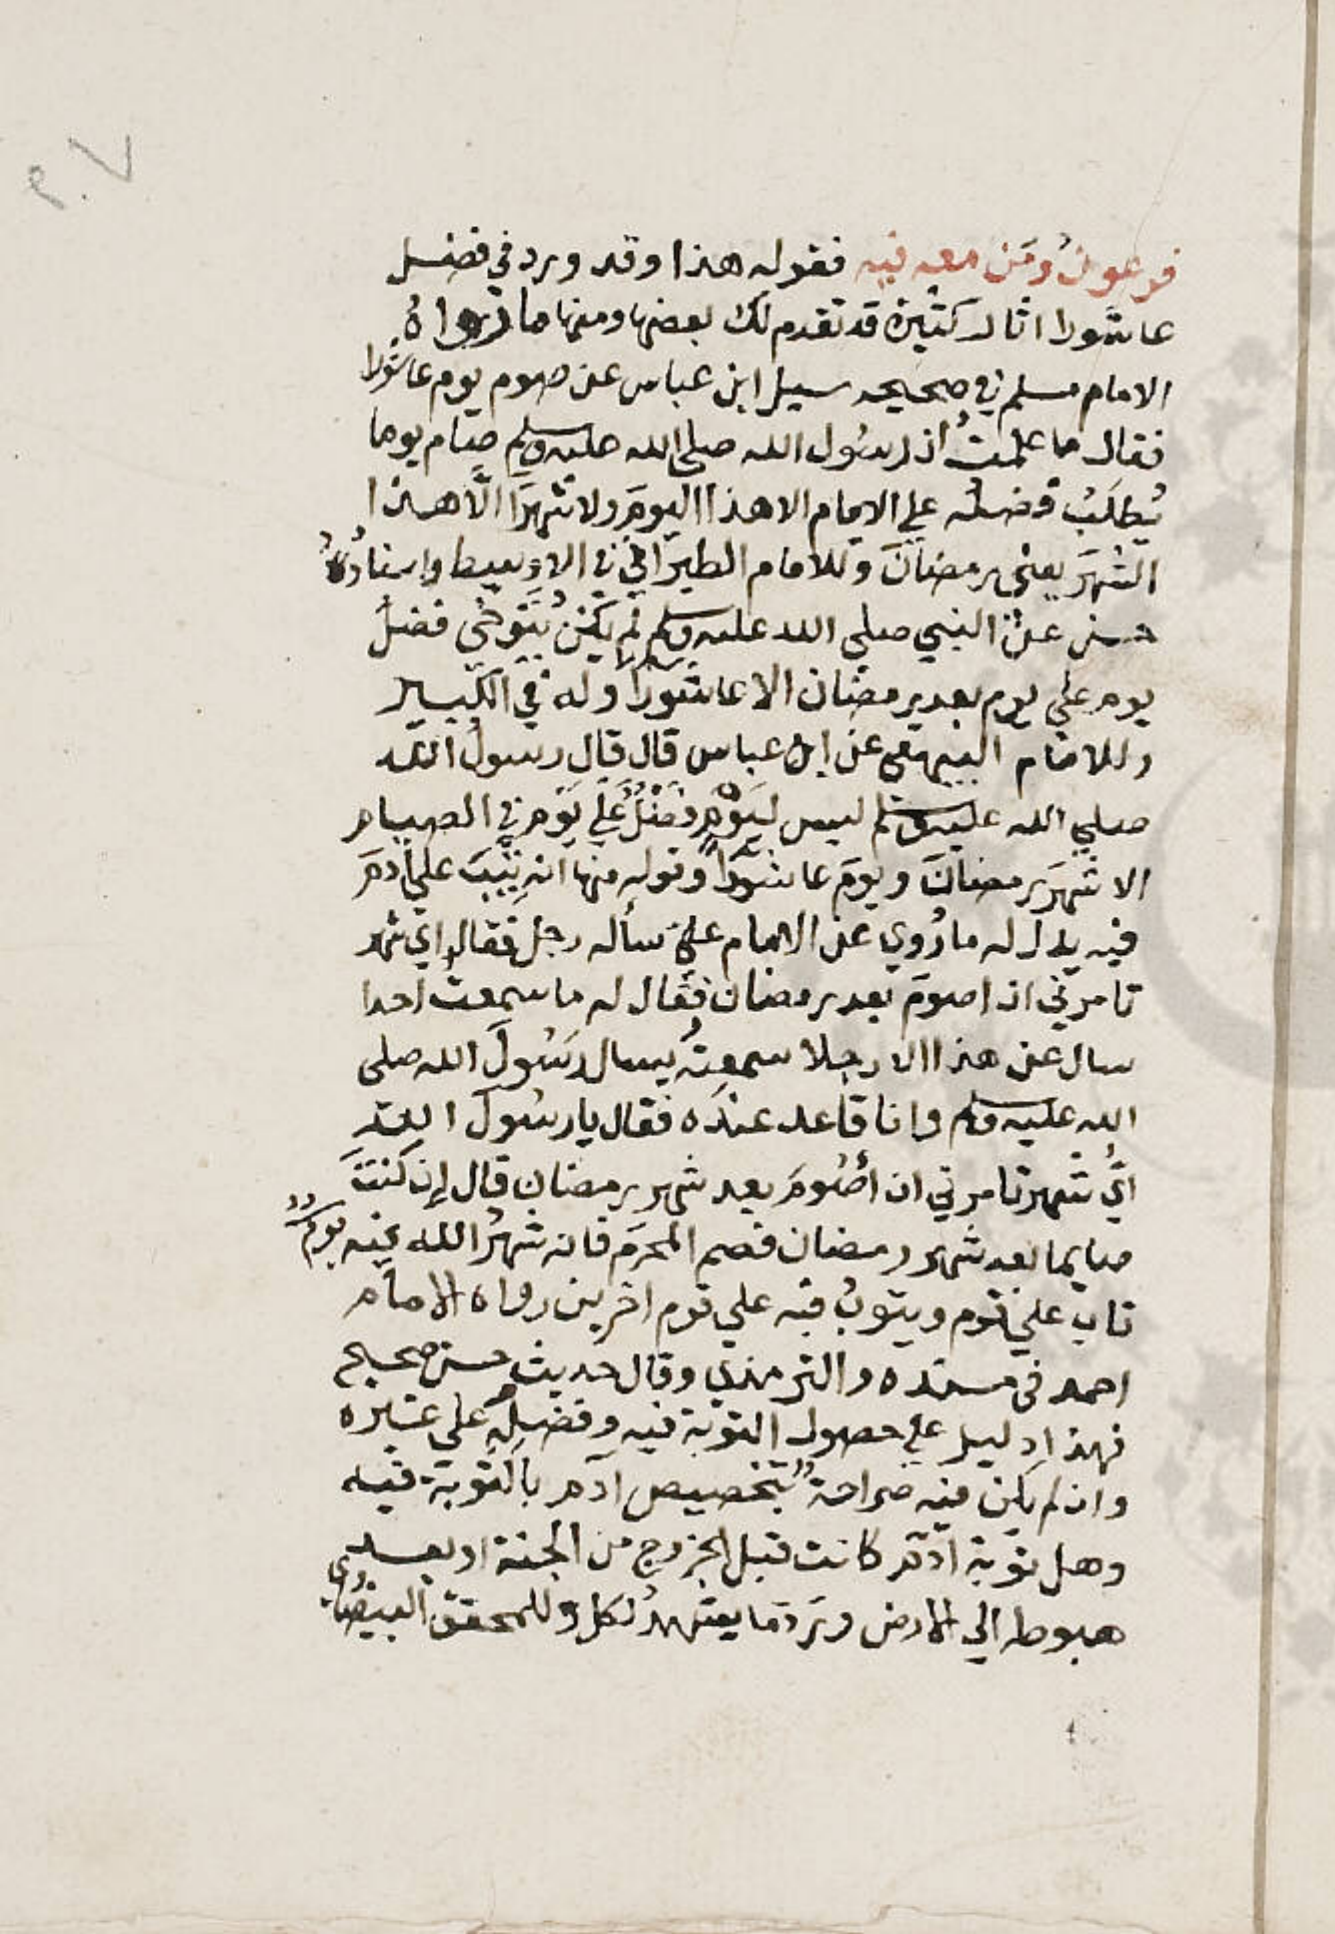 ٢٠٧
فرعونُ ومَن معه فيه فقوله هذا وقد ورد في فضل
عاشورا اثار كثيرة قد تقدم لك بعضها ومنها ما رواهُ
الامام مسلم في صحيحه سيل ابن عباس عن صوم يوم عاشورا
فقال ما علمتُ ان رسُول الله صلى الله عليه وسلم صام يوما
يُطلَبُ فضله على الايام الا هذا اليومَ ولا شهرًا الّا هذا
الشهرَ يعني رمضانَ وللامام الطبراني في الاوسط واسنادُهُ
حسن عن النبي صلى الله عليه وسلم لم يكُن يَتَوخَّى فضلَ
يوم على يوم بعد رمضان الا عاشورا وله في الكبير
وللامام البيهقي عن ابن عباس قال قال رسول الله
صلى الله عليه وسلم ليس ليَوْمٍ فَضْلٌ عَلَى يَوْم في الصيام
الا شهرَ رمضانَ ويومَ عاشورا وقوله منها انه تيبَ على ادمَ
فيه يدل له ما رُوي عن الامام علي سأله رجل فقال اي شهر
تامرني ان اصومَ بعد رمضان فقال له ما سمعتُ احدا
سال عن هذا الا رجلا سمعتُه يسال رسُولَ الله صلى
الله عليه وسلم وانا قاعد عندَه فقال يا رسُولَ الله
ايَّ شهر تامرني ان أصُومَ بعد شهر رمضان قال إن كنتَ
صايما بعد شهر رمضان فصم المحرمَ فانه شهرُ الله فيه يومٌ
تاب على قوم ويتوبُ فيه على قوم اخرين رواه الامام
احمد في مسنده والترمذي وقال حديث حسن صحيح
فهذا دليل على حصول التوبة فيه وفضلِه على غيره
وان لم يكن فيه صراحةٌ بتخصيص ادم بالتوبة فيه
وهل توبة ادم كانت قبل الخروج من الجنة او بعد
هبوطه الى الارض وترد ما يشهدُ لكل وللمحقق البيضاوي